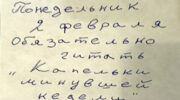 Понедельник
2 февраля
обязательно
читать
"Капельки
минувшей
недели"